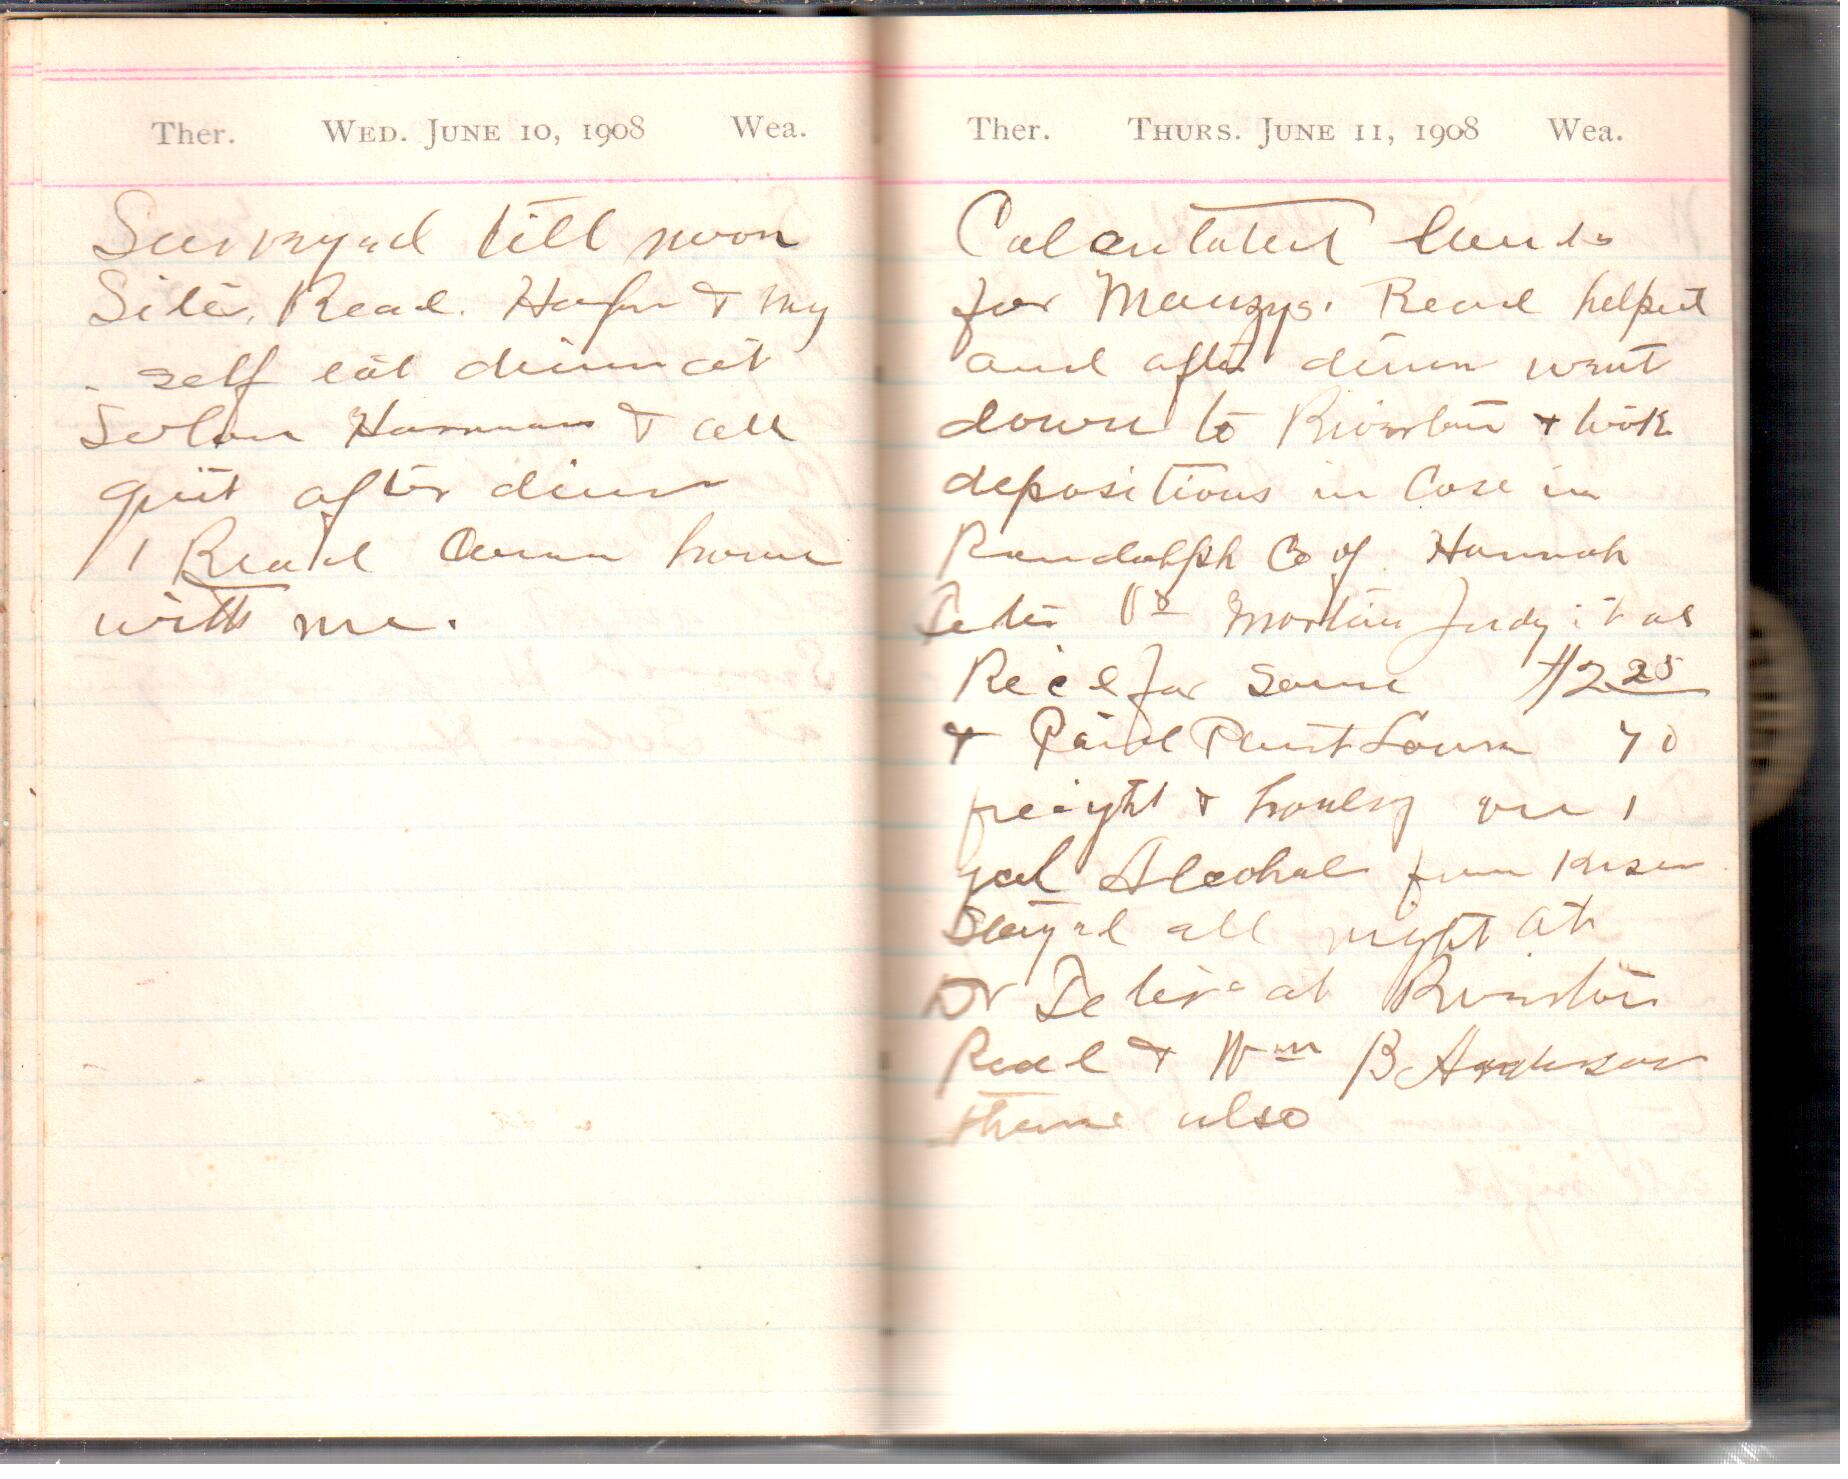 Ther. WED. JUNE 10, 1908 Wea.
Surveyed till noon
Sites, Read. & my
self eat dinn at
Solon Harman & all
quit after dinn
Read home
with me.
Ther. THURS. JUNE 11, 1908 Wea.
Calculated lands
for Mauzys. Read helped
and after dinn went
down to Riverton & took
depositions in Case in
Randolph Co of Hannah
Teter Vs Martin Judy it al
Recd for Same $2.25
& Paid 70
freight & on 1
gal Alcohal from Kiser
Stayed all night at
Dr Teters at Riverton
Read & Wm B Anderson
there also